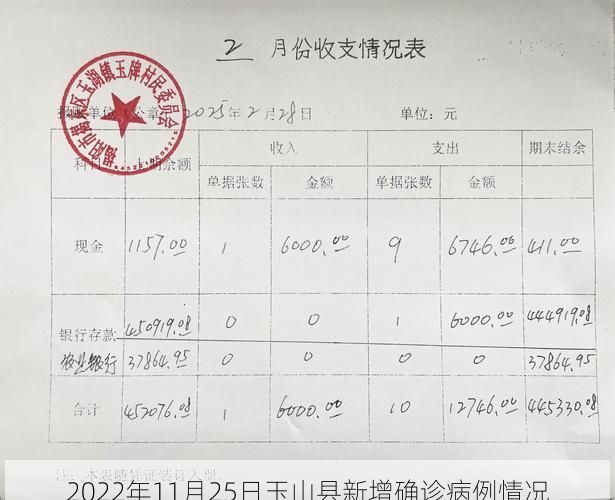 2 月份收支情况表
揭阳市揭东区玉湖镇玉牌村民委员会
报账单位（公章） 2025年2月28日 单位：元
科目 上期余额 收入 支出 期末结余
单据张数 金额 单据张数 金额
现金 1157.00 1 6000.00 9 6746.00 411.00
银行存款 450919.08 0 0 1 6000.00 444919.08
农业银行 37864.95 0 0 0 0 37864.95
合计 452076.08 1 6000.00 10 12746.00 445330.08
注：本表随凭证装订入册
2022年11月25日玉山县新增确诊病例情况